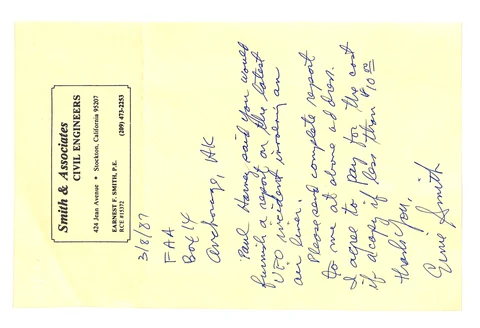 Smith & Associates
CIVIL ENGINEERS
424 Jean Avenue • Stockton, California 95207
EARNEST F. SMITH, P.E. (209) 473-2253
RCE #15372
3/8/87
FAA
Box 14
Anchorage, AK
Paul Harvey said you would
furnish a report on the latest
UFO incident involving an
air liner.
Please send complete report
to me at above address.
I agree to pay for the cost
if a copy if less than $10.00
thank you,
Ernie Smith